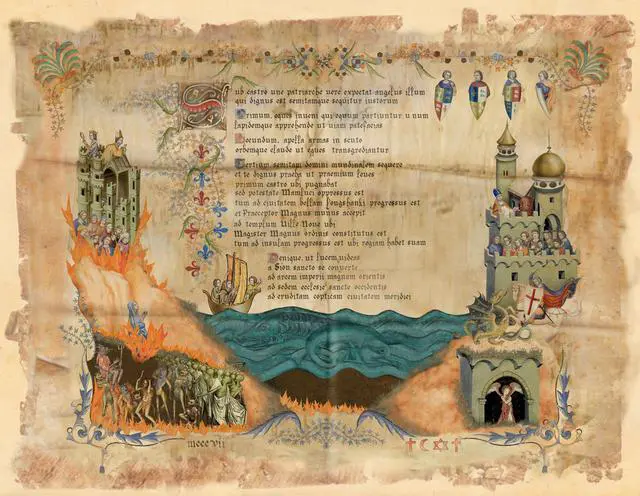 Sub castro une patriarche vere expectat angelus illum
qui dignus est semitamque sequitur iustorum
Primum, eques inueni qui equum partiuntur unum
lapidemque apprehende ut uiam patefacias
Secundum, armas in scuto
orbemque claude ut eques transgrediantur
Tertium semitam domini mundinalem sequere
et te dignus praeba ut praemium leues
primum castro ubi pugnabat
sed potestate Mamluci oppressus est
tum ad ciuitatem bellam progressus est
et Praeceptor Magnus munus accepit
ad templum Ville Noue ubi
Magister Magnus ordinis constitutus est
tum ad insulam progressus est ubi regiam habet suam
Denique, ut lucem uideas
a Sion sancto se conuerte
ad arcem imperii magnum orientis
ad sedem ecclesie sancte occidentis
ad eruditam copticam ciuitatem meridiei
mcccvii